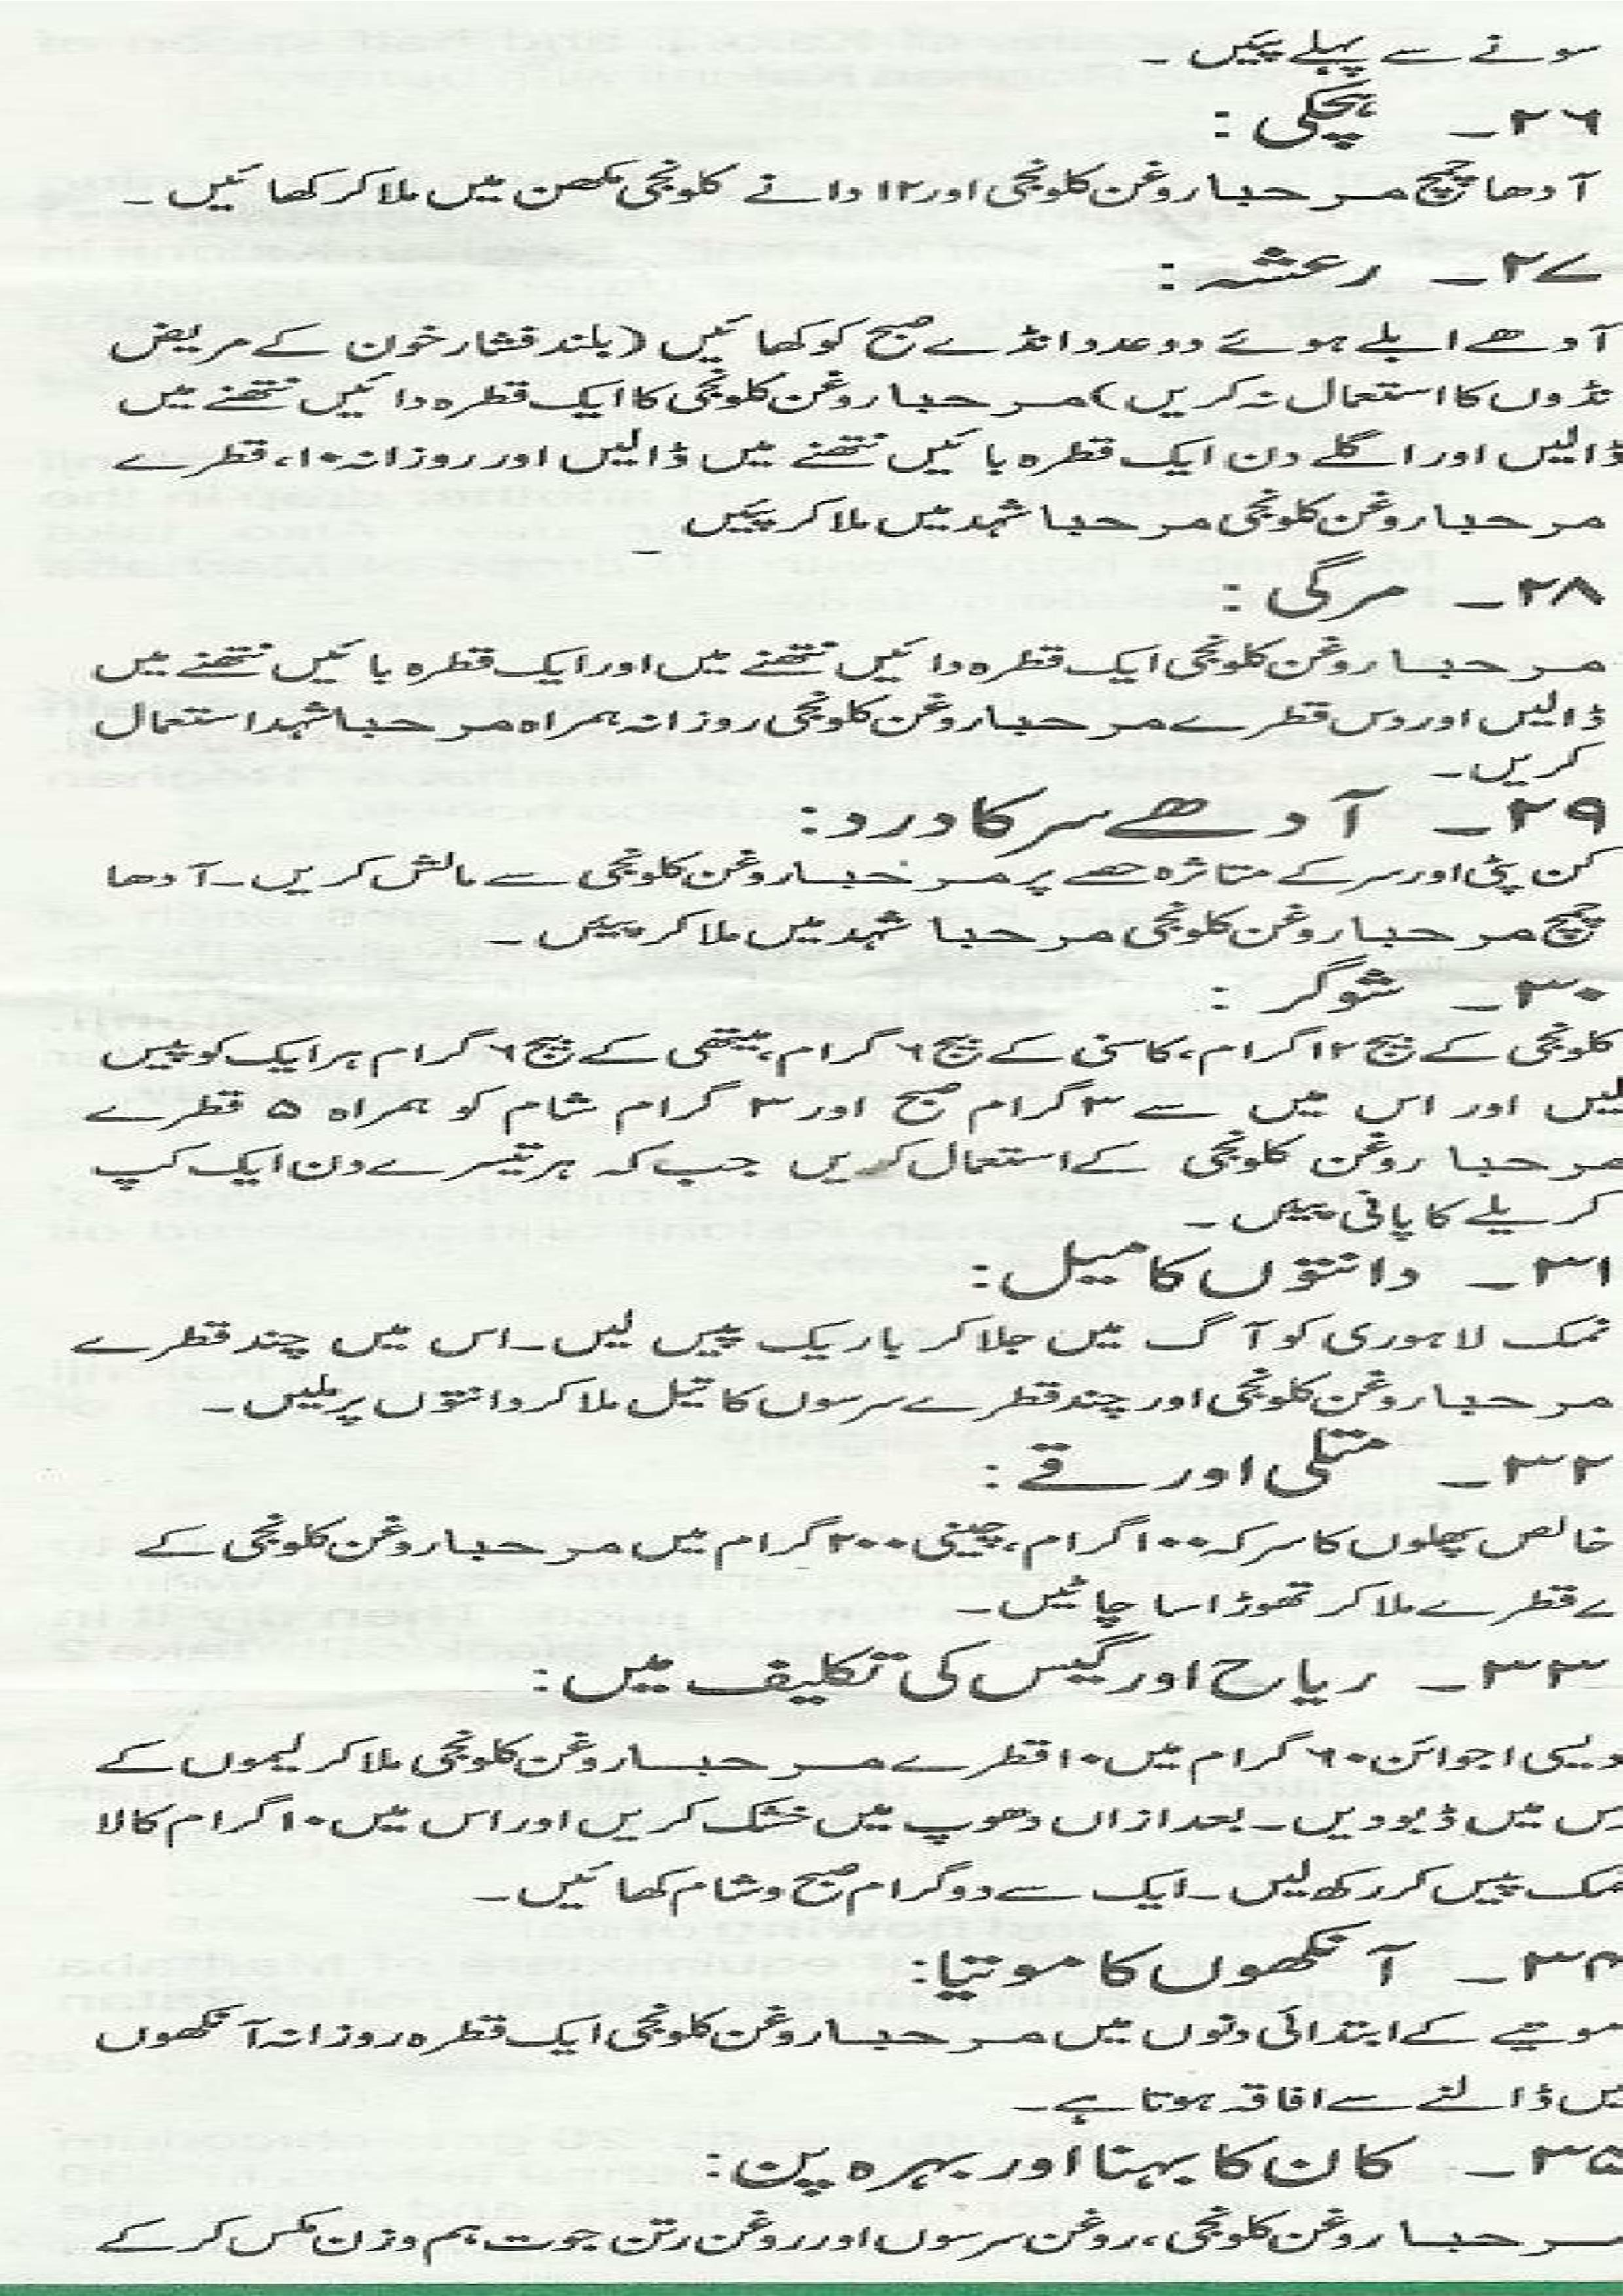 سونے سے پہلے پیئیں ۔
۲۶۔ ہچکی :
آدھا چمچ مرحبا روغن کلونجی اور ۱۲ دانے کلونجی مکھن میں ملا کر کھائیں ۔
۲۷۔ رعشہ :
آدھے ابلے ہوئے دو عدد انڈے صبح کو کھائیں (بلند فشار خون کے مریض
نڈوں کا استعمال نہ کریں) مرحبا روغن کلونجی کا ایک قطرہ دائیں نتھنے میں
ڈالیں اور اگلے دن ایک قطرہ بائیں نتھنے میں ڈالیں اور روزانہ ۱۰، قطرے
مرحبا روغن کلونجی مرحبا شہد میں ملا کر پیئیں ۔
۲۸۔ مرگی :
مرحبا روغن کلونجی ایک قطرہ دائیں نتھنے میں اور ایک قطرہ بائیں نتھنے میں
ڈالیں اور دس قطرے مرحبا روغن کلونجی روزانہ ہمراہ مرحبا شہد استعمال
کریں۔
۲۹۔ آدھے سر کا درد:
کن پٹی اور سر کے متاثرہ حصے پر مرحبا روغن کلونجی سے مالش کریں۔ آدھا
چمچ مرحبا روغن کلونجی مرحبا شہد میں ملا کر پیئیں ۔
۳۰۔ شوگر :
کلونجی کے بیج ۱۲ گرام، کاسنی کے بیج ۶ گرام، میتھی کے بیج ۶ گرام ہر ایک کو پیس
لیں اور اس میں سے ۳ گرام صبح اور ۳ گرام شام کو ہمراہ ۵ قطرے
مرحبا روغن کلونجی کے استعمال کریں جب کہ ہر تیسرے دن ایک کپ
کریلے کا پانی پیئیں ۔
۳۱۔ دانتوں کا میل:
نمک لاہوری کو آگ میں جلا کر باریک پیس لیں۔ اس میں چند قطرے
مرحبا روغن کلونجی اور چند قطرے سرسوں کا تیل ملا کر دانتوں پر ملیں۔
۳۲۔ متلی اور قے :
خالص پھلوں کا سرکہ ۱۰۰ گرام، چینی ۲۰۰ گرام میں مرحبا روغن کلونجی کے
ے قطرے ملا کر تھوڑا سا چاٹیں۔
۳۳۔ ریاح اور گیس کی تکلیف میں:
دیسی اجوائن ۶۰ گرام میں ۱۰ قطرے مرحبا روغن کلونجی ملا کر لیموں کے
رس میں ڈبو دیں۔ بعد ازاں دھوپ میں خشک کریں اور اس میں ۱۰ گرام کالا
نمک پیس کر رکھ لیں۔ ایک سے دو گرام صبح و شام کھائیں۔
۳۴۔ آنکھوں کا موتیا:
موتیے کے ابتدائی دنوں میں مرحبا روغن کلونجی ایک قطرہ روزانہ آنکھوں
میں ڈالنے سے افاقہ ہوتا ہے۔
۳۵۔ کان کا بہنا اور بہرہ پن:
مرحبا روغن کلونجی، روغن سرسوں اور روغن رتن جوت ہم وزن مکس کر کے